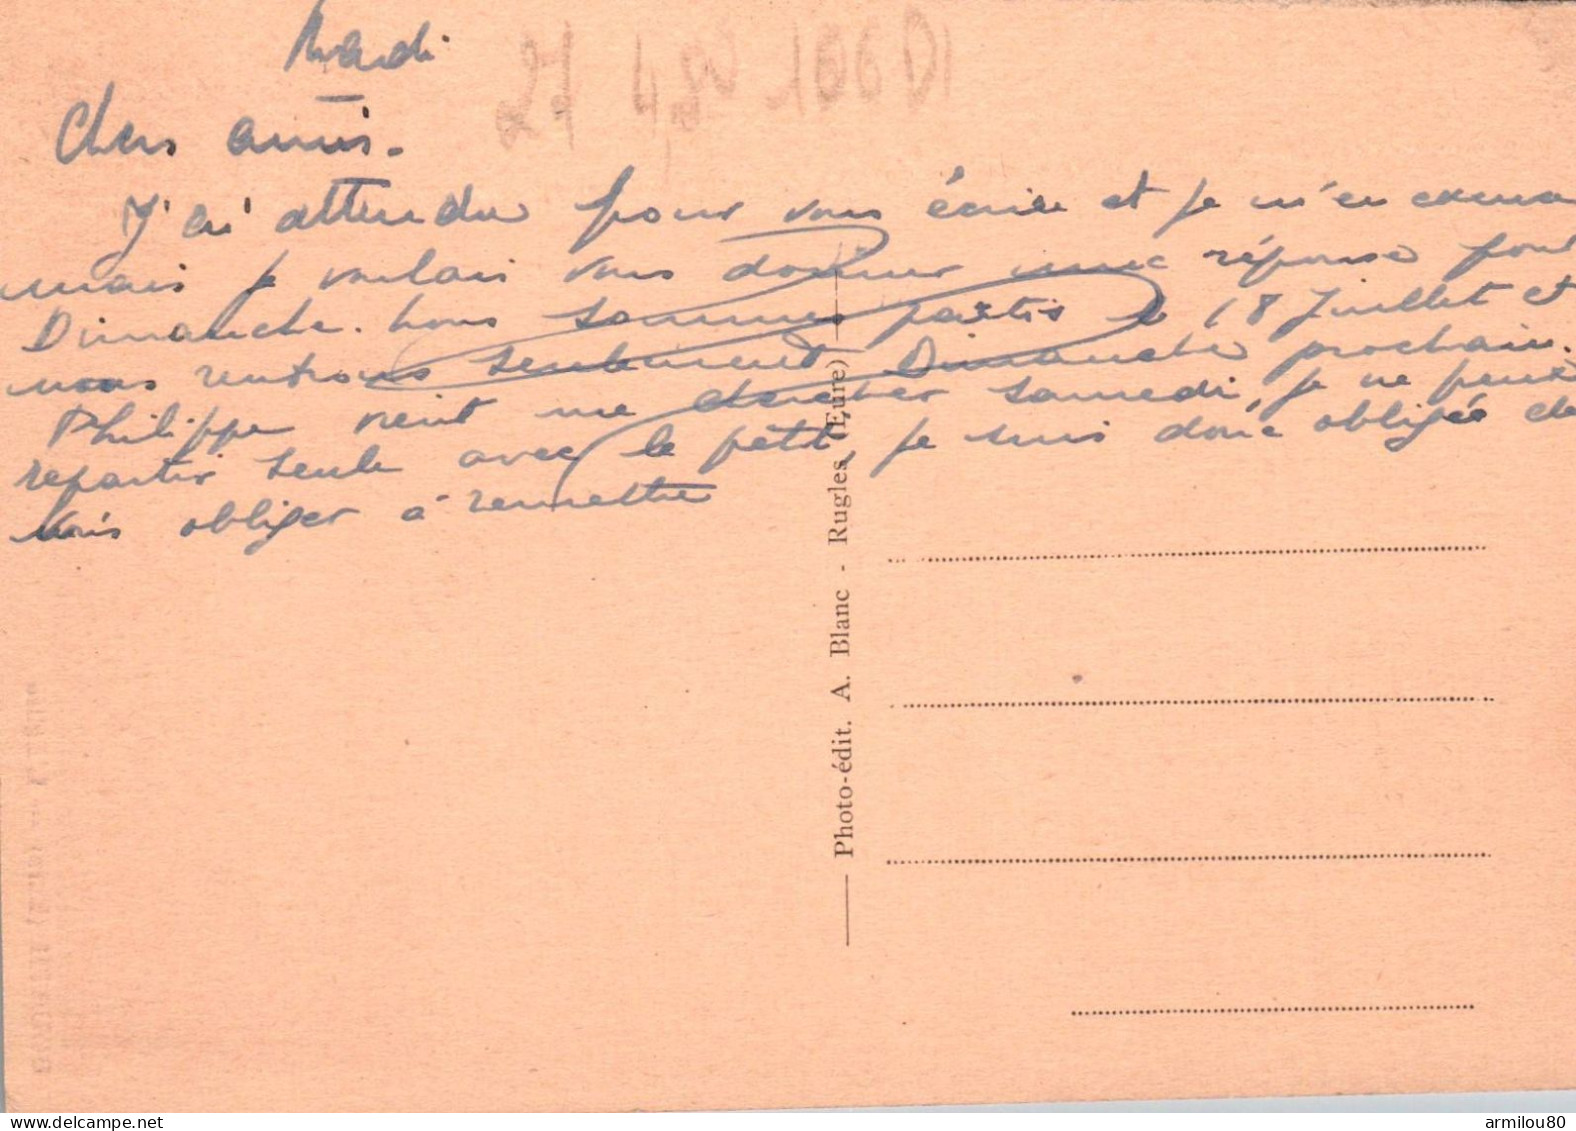 Mardi
27 4,50 106 DI
Chers amis.
J'ai attendu pour vous écrire et je m'en excuse
mais je voulais vous donner une réponse pour
Dimanche. Nous sommes partis le 18 Juillet et
nous rentrons seulement Dimanche prochain.
Philippe vient me chercher samedi, je ne peux
repartir seule avec le petit, je suis donc obligée de
vous obliger à remettre
Photo-édit. A. Blanc - Rugles (Eure)
armilou80